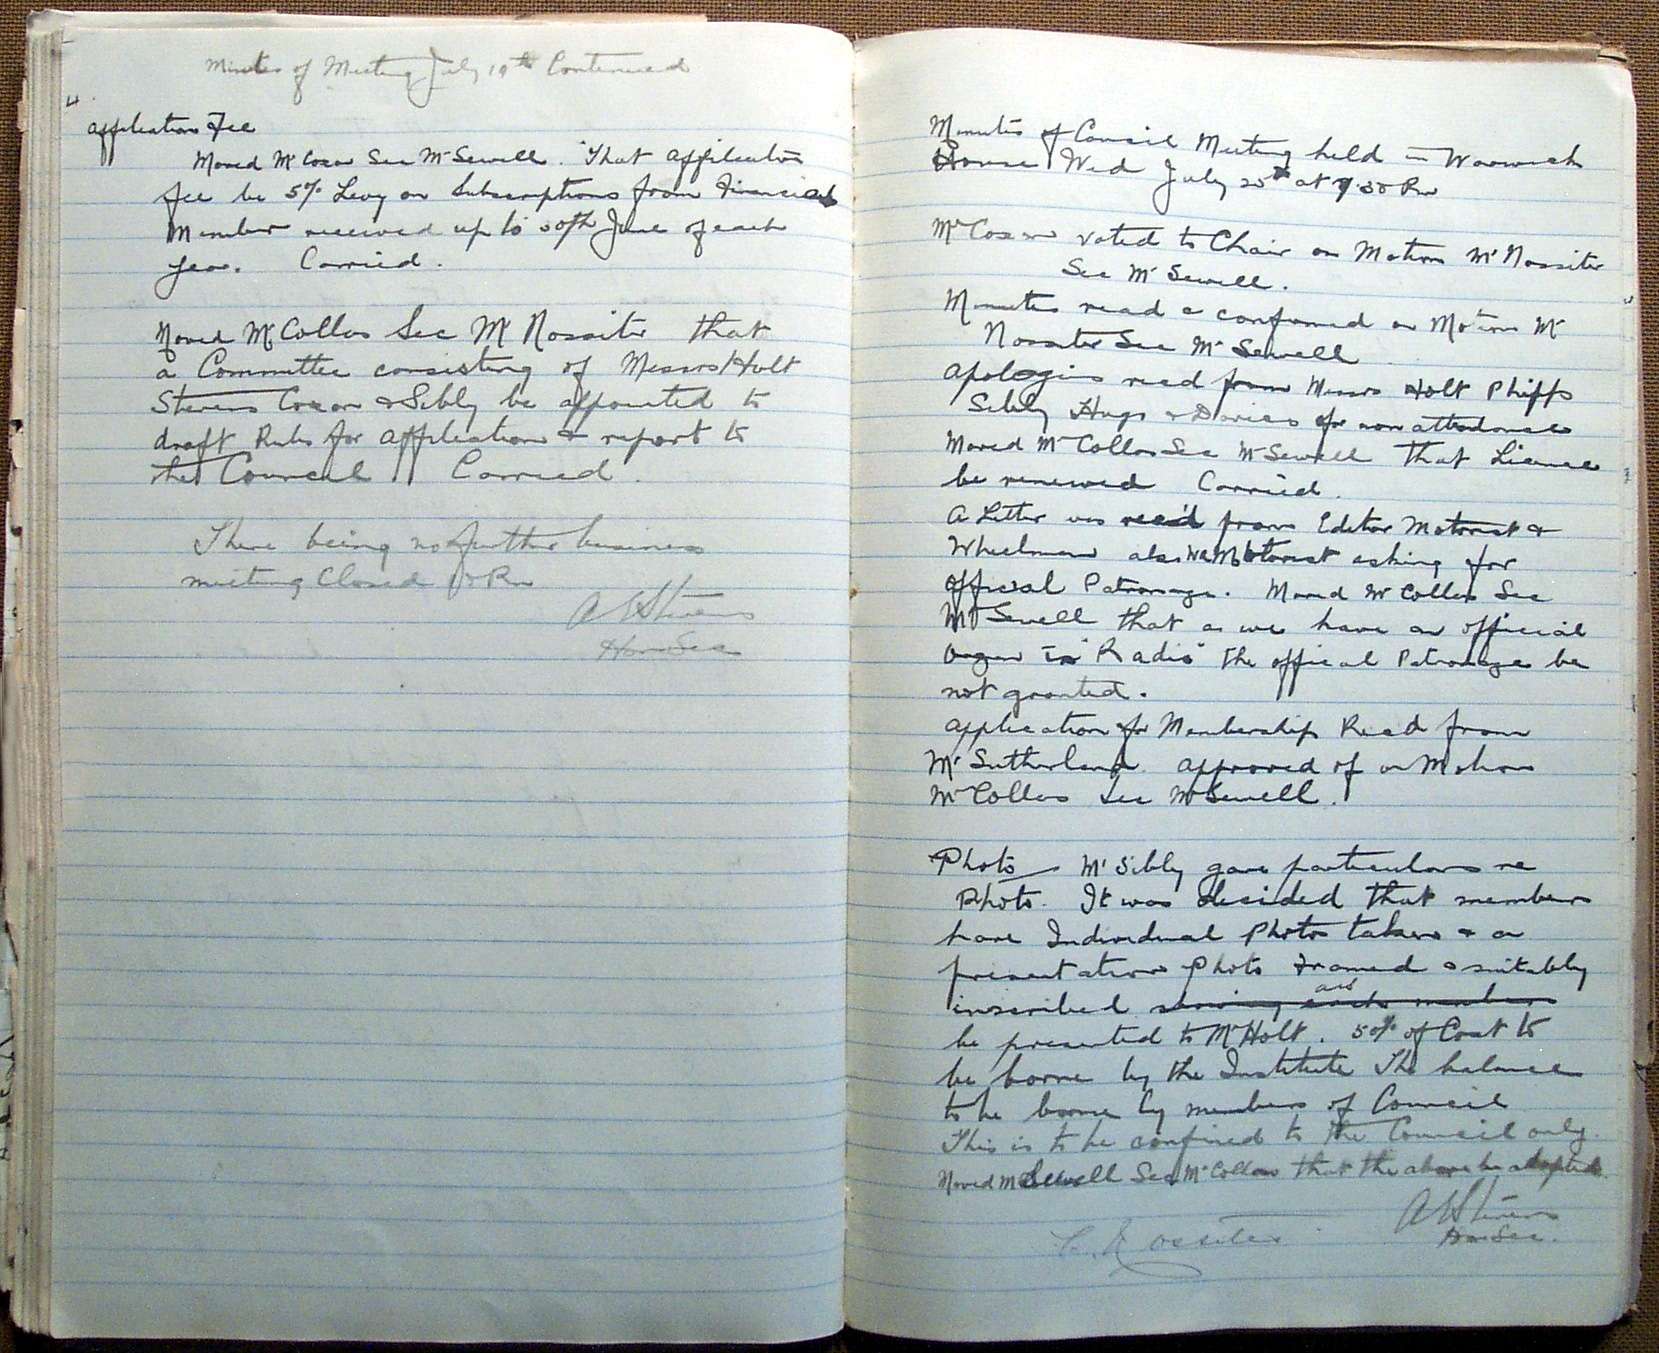 Minutes of Meeting July 19th Continued
Affiliation Fee
Moved Mr Coxon Sec Mr Sewell. "That Affiliation
fee be 5% Levy on Subscriptions from Financial
Member received up to 30th June of each
year. Carried.
Moved Mr Collas Sec Mr Rossiter that
a Committee consisting of Messrs Holt
Stevens Coxon & Sibly be appointed to
draft Rules for Affiliation & report to
the Council Carried.
There being no further business
meeting Closed PM
A E Stevens
Hon Sec
Minutes of Council Meeting held in Warwick
House Wed July 25th at 7 30 PM
Mr Coxon voted to Chair on Motion Mr Rossiter
Sec Mr Sewell.
Minutes read & confirmed on Motion Mr
Rossiter Sec Mr Sewell
Apologies recd from Messrs Holt Phipps
Sibly & Davies for non attendance
Moved Mr Collas Sec Mr Sewell that License
be renewed Carried.
A Letter was rec'd from Editor Motorist &
Wheelman also Motorist asking for
official Patronage. Moved Mr Collas Sec
Mr Sewell that as we have an official
Organ in "Radio" the offical Patronage be
not granted.
Application for Membership Recd from
Mr Sutherland. Approved of on Motion
Mr Collas Sec Mr Sewell.
Photo Mr Sibly gave particulars re
Photo. It was decided that members
have Individual Photos taken & a
presentation Photo Framed & suitably
inscribed and
be presented to Mr Holt. 50% of Cost to
be borne by the Institute The balance
to be borne by members of Council
This is to be confined to the Council only.
Moved Mr Sewell Sec Mr Collas that the above be adopted.
A E Stevens
Hon Sec.
C. Rossiter